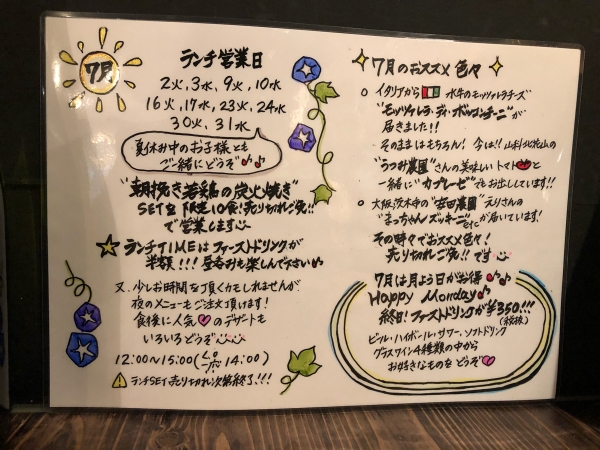 7月
ランチ営業日
2火,3水,9火,10水
16火,17水,23火,24水
30火,31水
夏休み中のお子様とも
ご一緒にどうぞ♪♪
"朝挽き若鶏の炭火焼き"
SET 限定10食!売り切れご免!!
で営業します
☆ランチTIMEはファーストドリンクが
半額!!!昼呑みも楽しんで下さい♪
又、少しお時間を頂くかもしれませんが
夜のメニューもご注文頂けます!
食後に人気♥のデザートも
いろいろどうぞ
12:00〜15:00(L.O 14:00)
⚠ランチSET売り切れ次第終了!!!
7月のおススメ色々
○イタリアから 水牛のモッツァレラチーズ
"モッツァレラ・ディ・ボッコンチーニ"が
届きました!!
そのままはもちろん!今は!!山科北花山の
"うつみ農園"さんの美味しいトマトと
一緒に"カプレーゼ"でもお出ししています!!
○大阪茨木市の"安田農園"えりさんの
"まっちゃんズッキーニ"etcが届いています!
その時々でおススメ色々!
売り切れご免!!です
7月は月よう日がお得♪♪
Happy Monday♪
終日!ファーストドリンクが¥350!!!
(税抜)
ビール・ハイボール・サワー、ソフトドリンク
グラスワイン4種類の中から
お好きなものをどうぞ♥